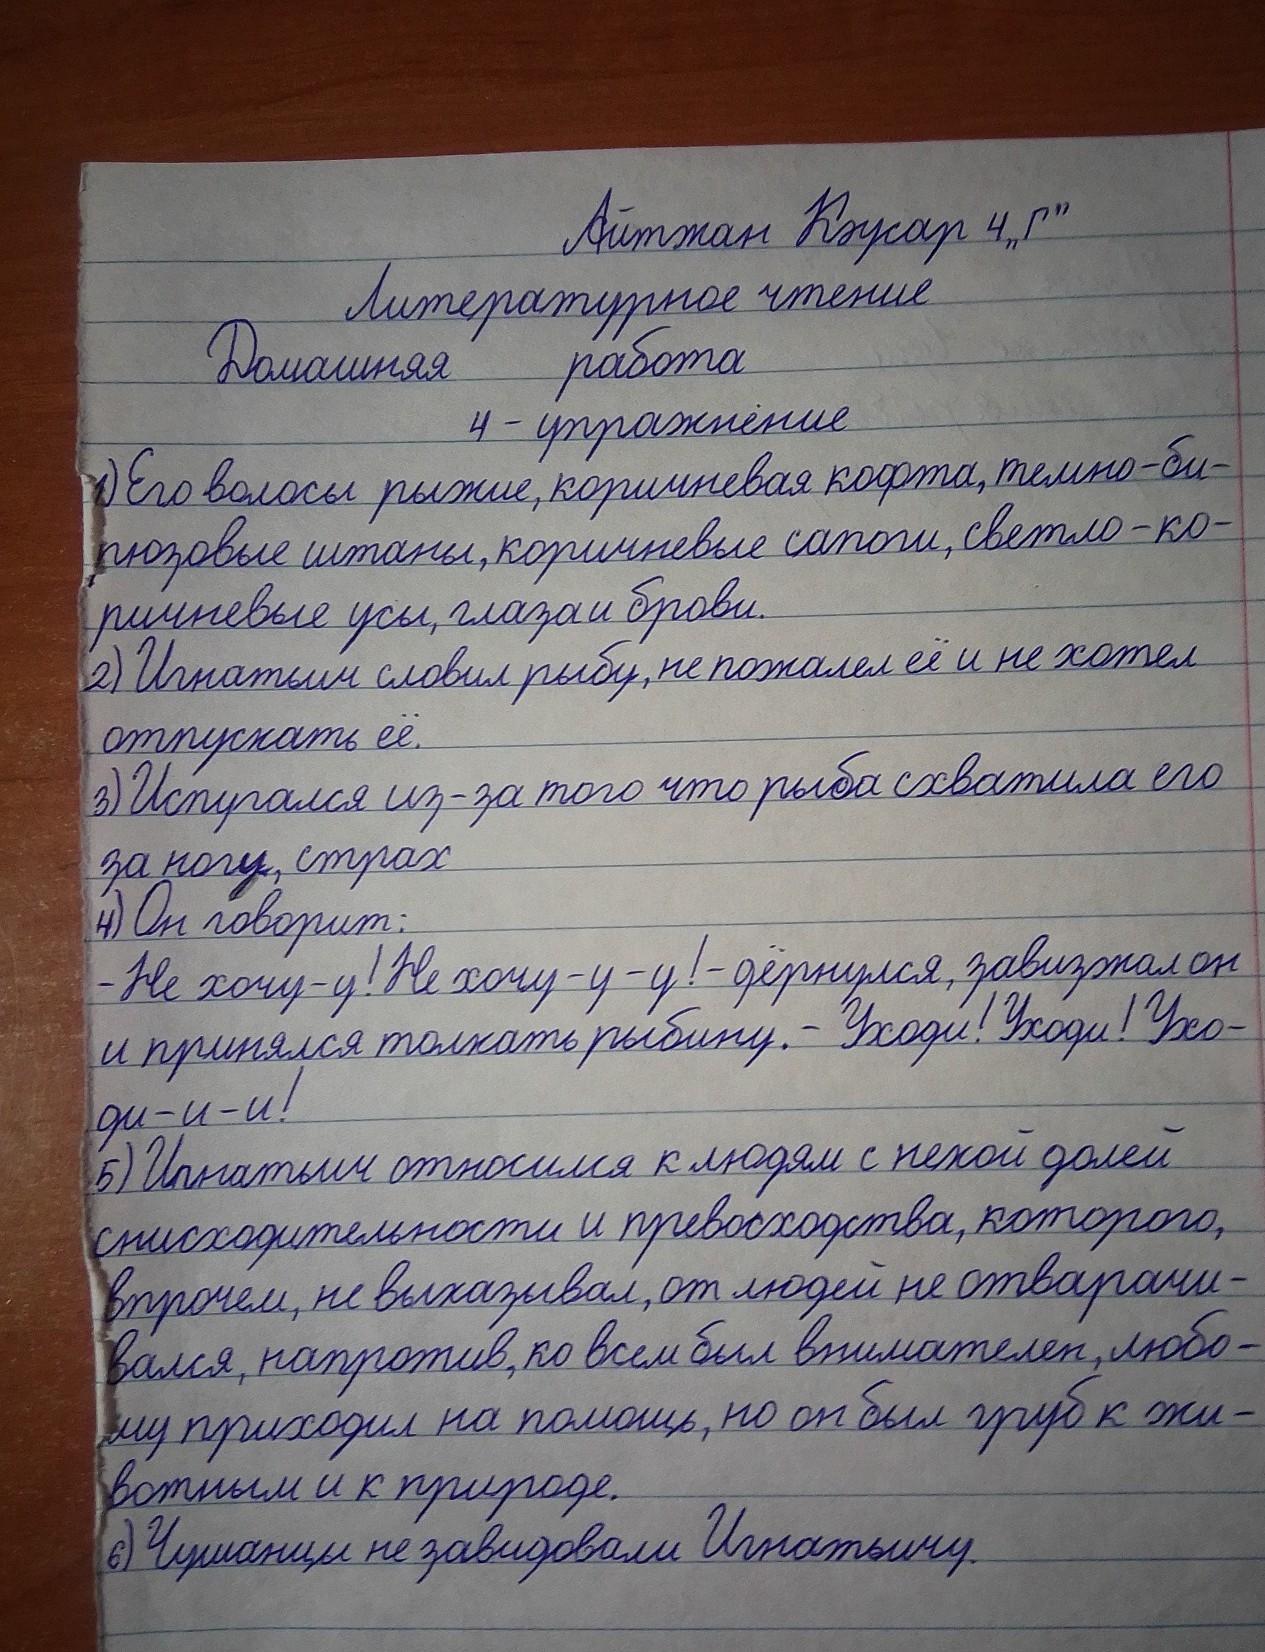 Айтжан Кәусар 4„Г"
Литературное чтение
Домашняя работа
4 - упражнение
1) Его волосы рыжие, коричневая кофта, темно-би-
рюзовые штаны, коричневые сапоги, светло-ко-
ричневые усы, глаза и брови.
2) Игнатьич словил рыбу, не пожалел её и не хотел
отпускать её.
3) Испугался из-за того что рыба схватила его
за ногу, страх
4) Он говорит:
- Не хочу-у! Не хочу-у-у! - дёрнулся, завизжал он
и принялся толкать рыбину. - Уходи! Уходи! Ухо-
ди-и-и!
5) Игнатьич относился к людям с некой долей
снисходительности и превосходства, которого,
впрочем, не выказывал, от людей не отварачи-
вался, напротив, ко всем был внимателен, любо-
му приходил на помощь, но он был груб к жи-
вотным и к природе.
6) Чушанцы не завидовали Игнатьичу.